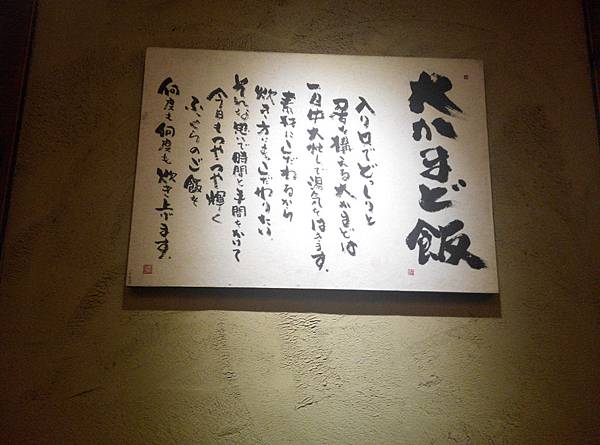 大かまど飯
入り口でどしっと
君を構える大かまどは
一日中大忙しで湯気をはきます。
素材にこだわるから
炊き方にもこだわりたい。
そんな想いで時間と手間をかけて
今日もつやつや輝く
ふっくらのご飯を
何度も何度も炊き上げます。